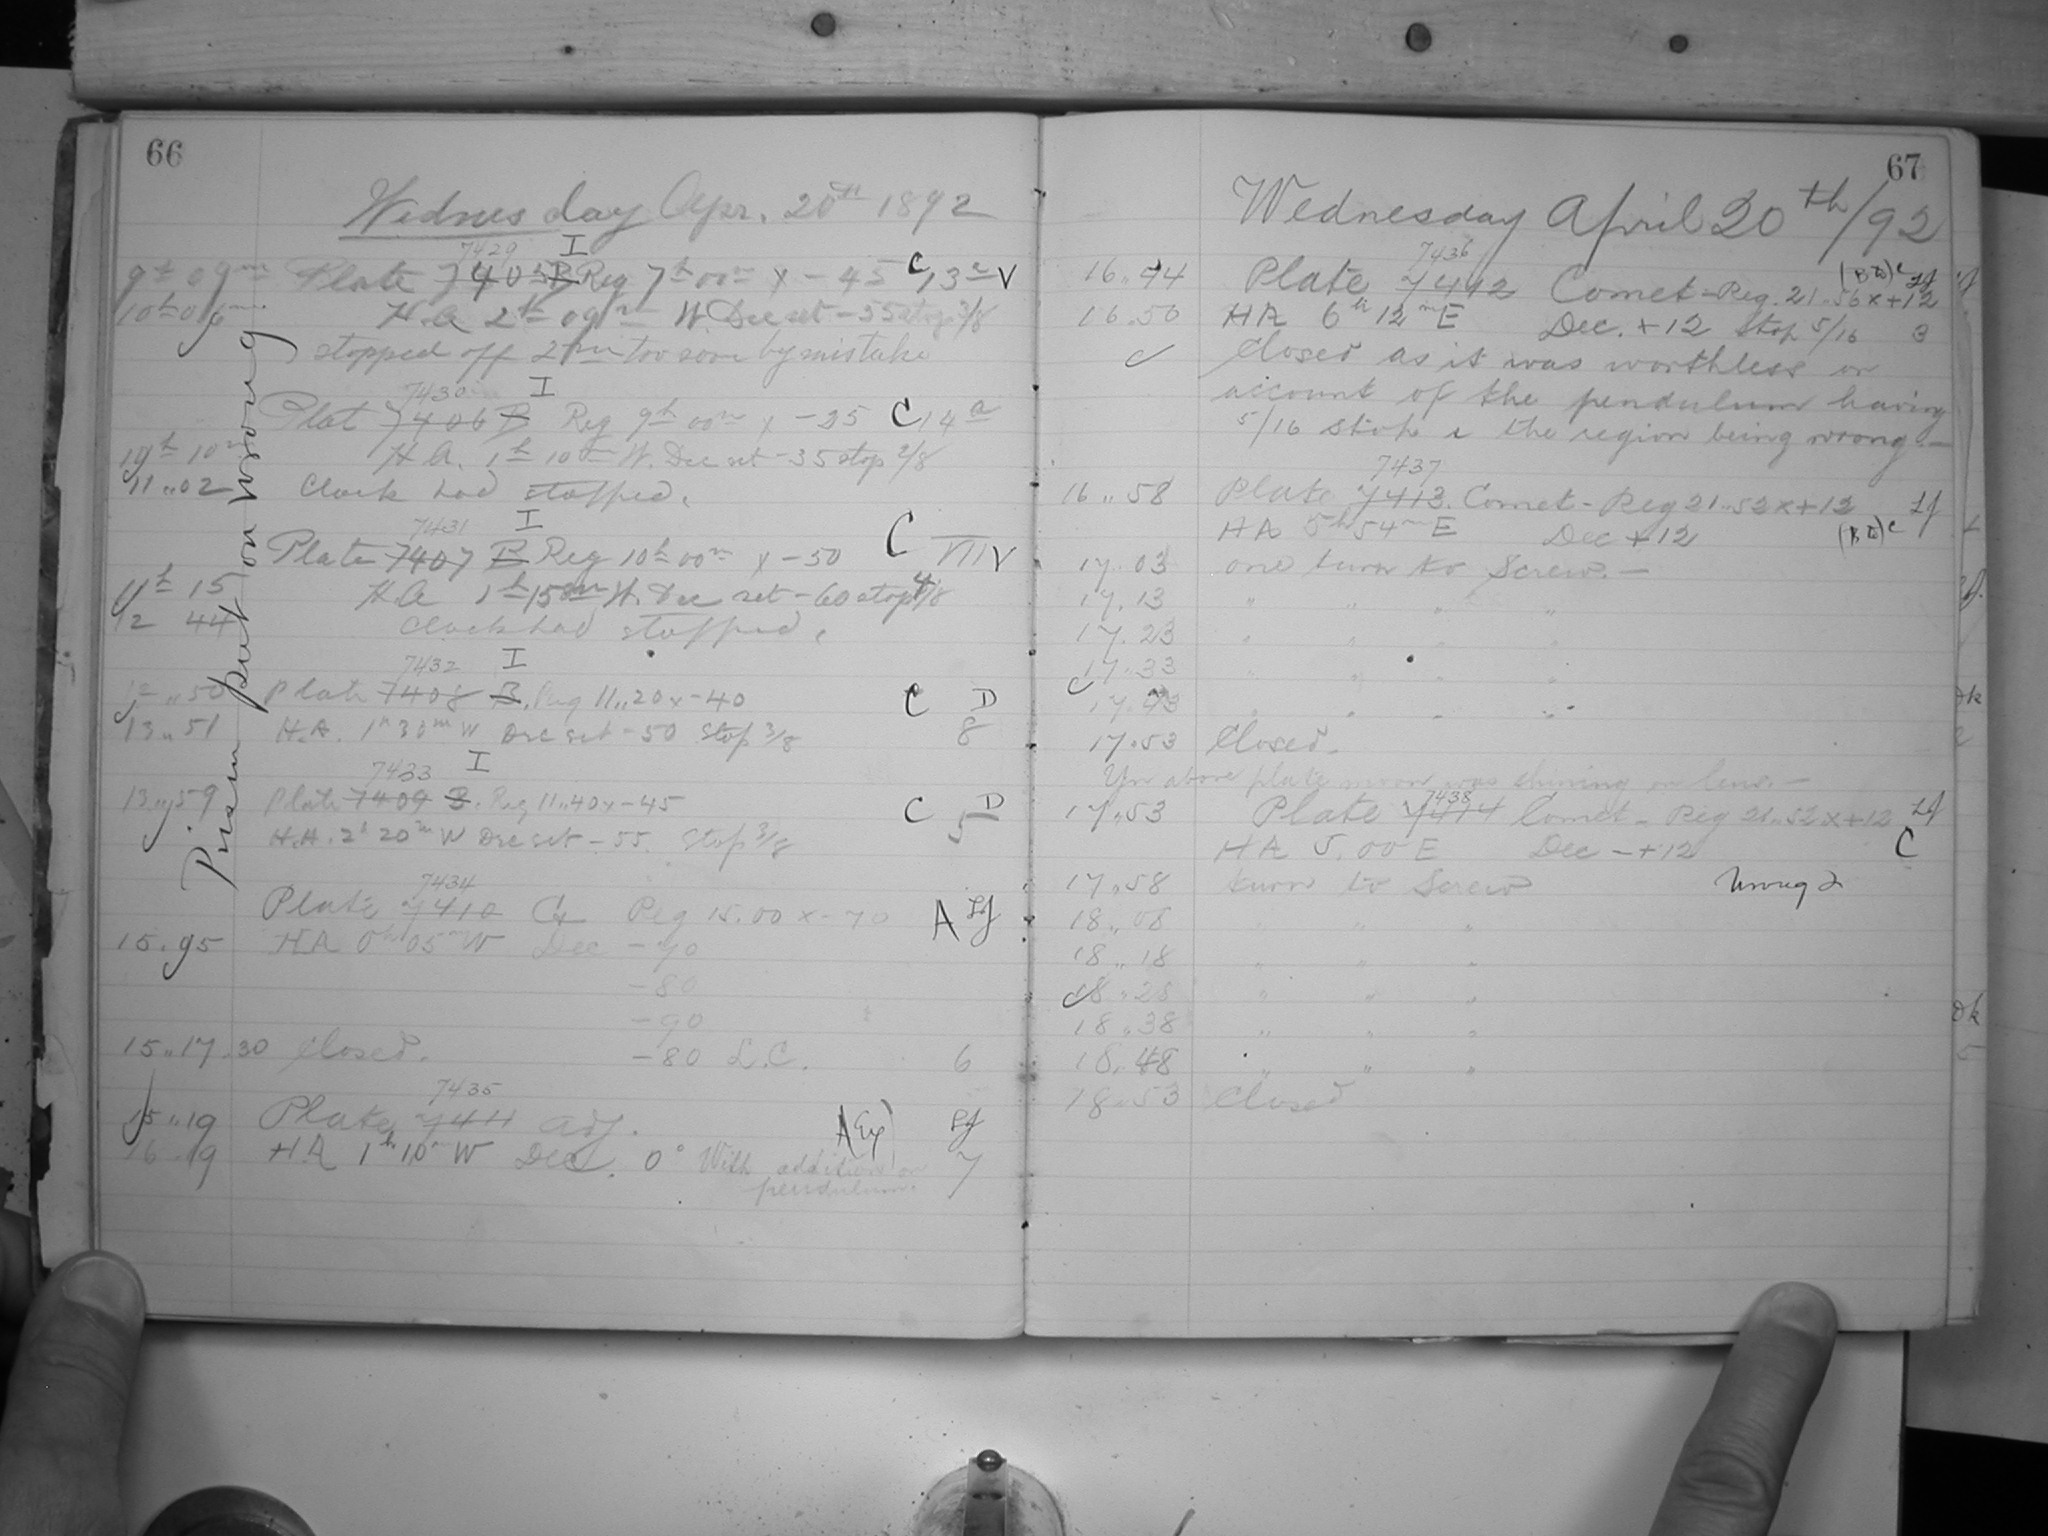 66
Wednesday Apr. 20th 1892
7429 I
9h 09m Plate 7405 B Reg 7h 00m x -45 C 13a V
10h 06m H.A. 2h 09m W. Dec set -55 stop 3/8
stopped off 2m too soon by mistake
7430 I
Plat 7406 B Reg 9h 00m x -25 C 14a
10h 10m H.A. 1h 10m W. Dec set -35 stop 2/8
11 "02 Clock had stopped.
7431 I
Plate 7407 B Reg 10h 00m x -50 C VII V
11h 15 H.A 1h 15m W. Dec set -60 stop 4/8
12 44 Clock had stopped.
7432 I
12 "50 Plate 7408 B. Reg 11"20 x -40 C D
13"51 H.A. 1h 30m W Dec set -50 Stop 3/8 8
7433 I
13"59 Plate 7409 B. Reg 11"40 x -45 C D
H.A. 2h 20m W Dec set -55. Stop 3/8 5
Prism put on wrong
7434
Plate 7410 Reg 15.00 x -70 A
HA 0h 05m W Dec -70
-80
-90
15"17.30 Closed. -80 L.C. 6
7435
15"19 Plate 7411 adj. A
16 19 HA 1h 10m W Dec. 0° With addition on 7
pendulum.
67
Wednesday April 20th/92
7436
16"44 Plate 7412 Comet - Reg. 21"56 x +12
16.50 HA 6h 12m E Dec. +12 Stop 5/16 3
Closed as it was worthless on
account of the pendulum having
5/16 stop & the region being wrong -
7437
16"58 Plate 7413. Comet - Reg 21"52 x +12
HA 5h 54m E Dec +12
17.03 one turn to Screw. -
17.13 " " " "
17.23 " " " "
17.33 " " " "
17.43 " " " "
17.53 Closed -
In above plate moon was shining on lens -
7438
17.53 Plate 7414 Comet - Reg 21"52 x +12
HA 5.00 E Dec - +12 C
17.58 turn to Screw
18"08 " " "
18"18 " " "
18"28 " " "
18"38 " " "
18"48 " " "
18.53 Closed